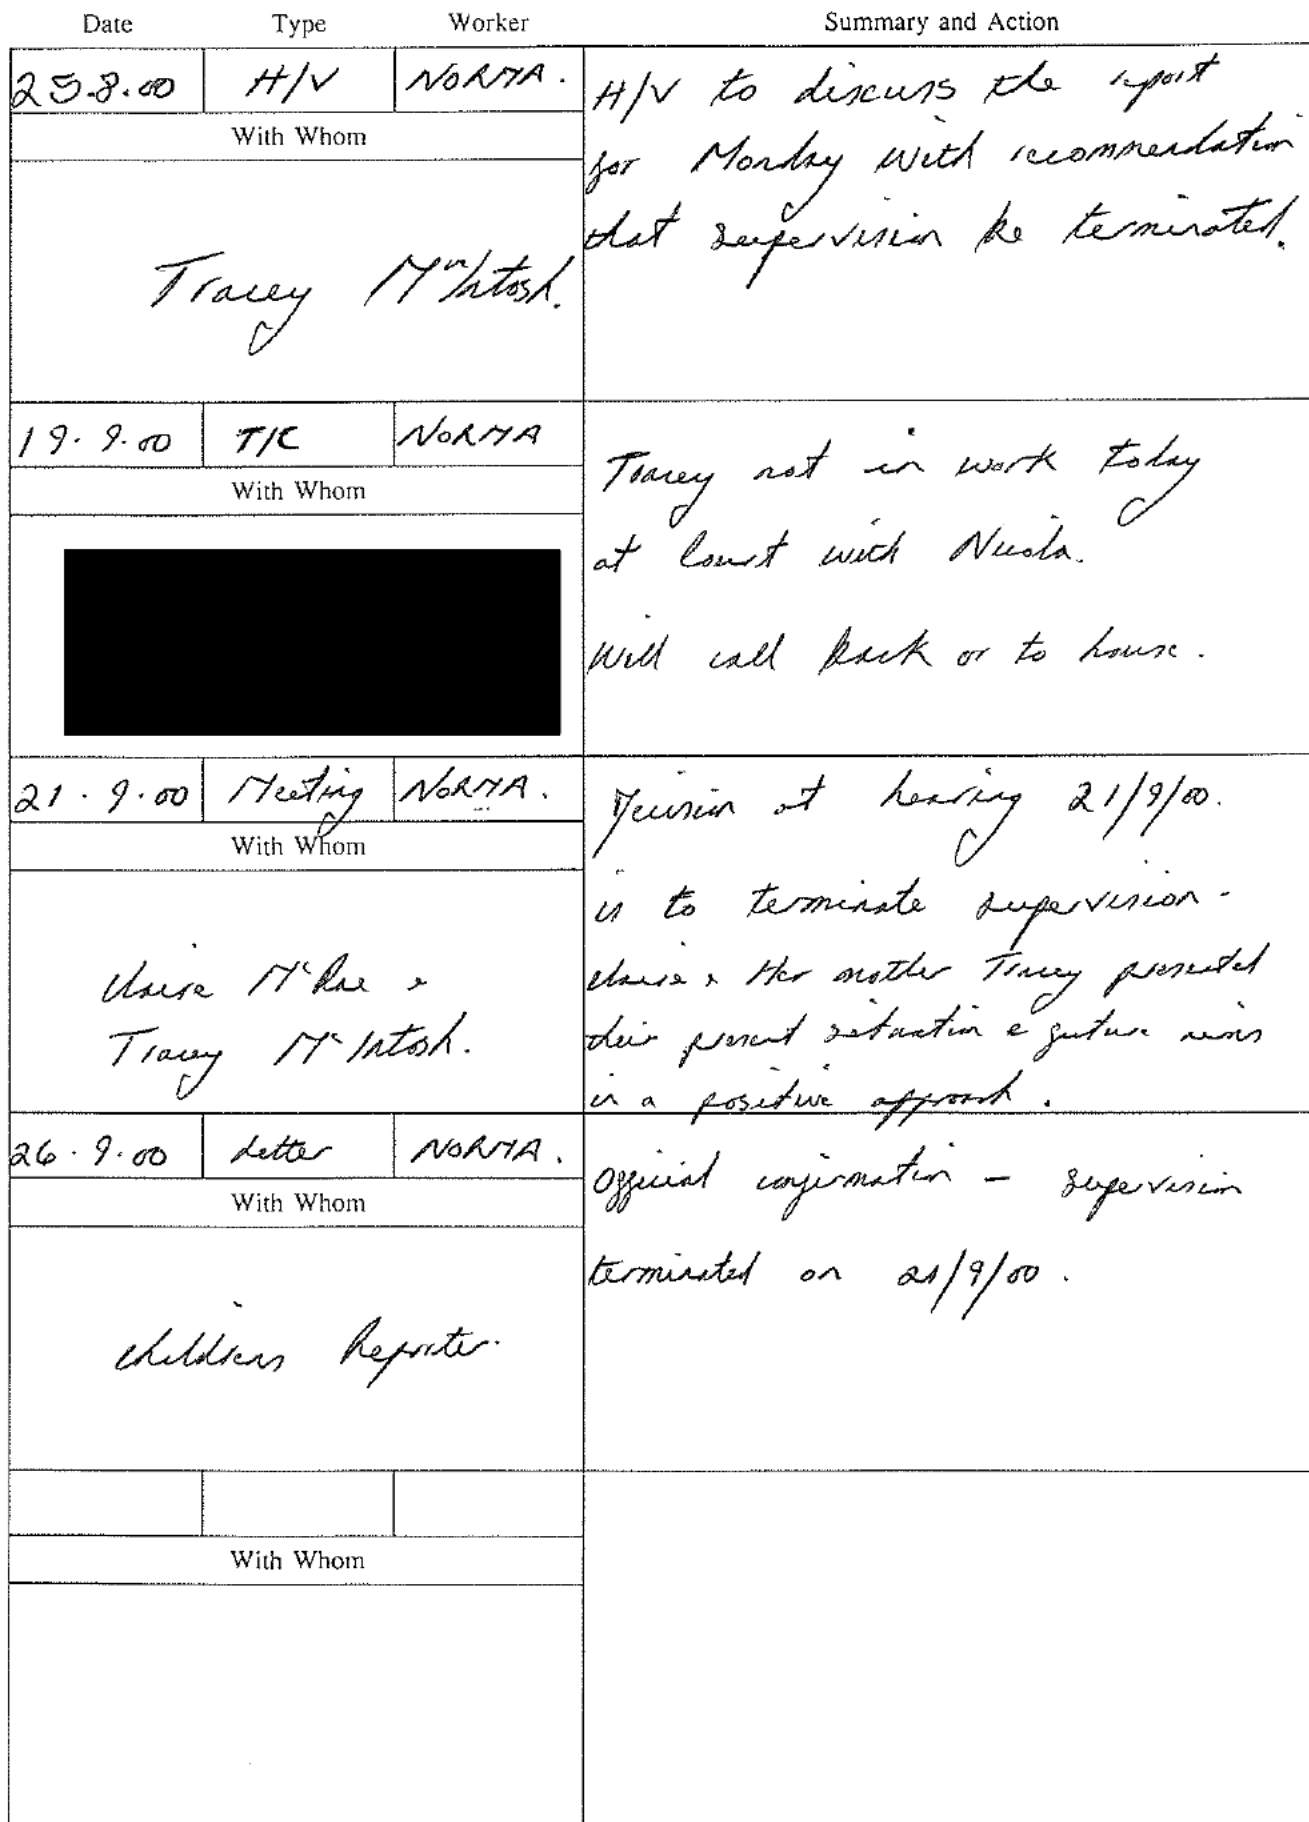 Date Type Worker Summary and Action
25.8.00 H/V NORMA.
With Whom
Tracey McIntosh.
H/V to discuss the report
for Monday with recommendation
that supervision be terminated.
19.9.00 T/C NORMA
With Whom
Tracey not in work today
at Court with Nicola.
Will call back or to house.
21.9.00 Meeting NORMA.
With Whom
Claire McRae &
Tracey McIntosh.
Decision at hearing 21/9/00.
is to terminate supervision.
Claire & Her mother Tracey presented
their present situation & future
in a positive approach.
26.9.00 Letter NORMA.
With Whom
Childrens Reporter.
Official confirmation - supervision
terminated on 21/9/00.
With Whom